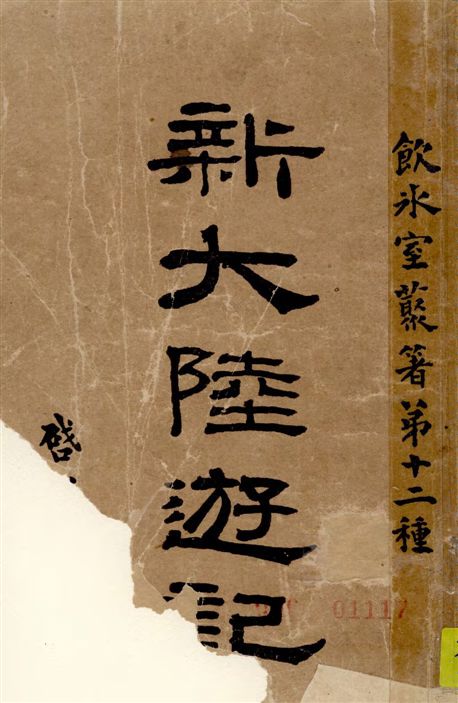 飲氷室叢著第十二種
新大陸遊記
啓
01117